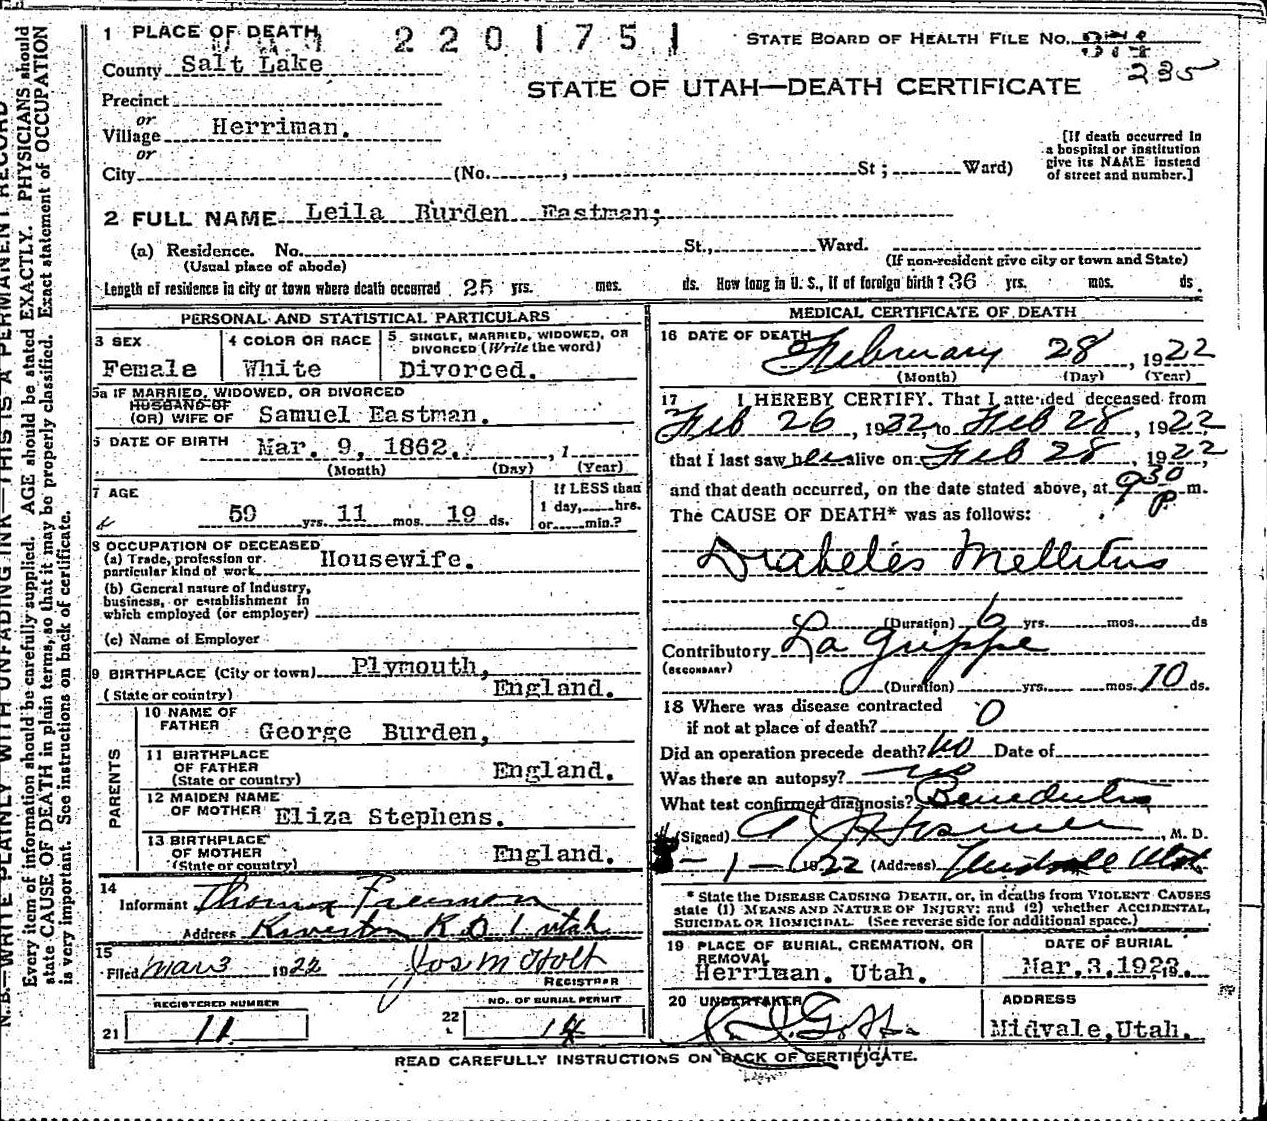 1 PLACE OF DEATH
2201751
STATE BOARD OF HEALTH FILE No.
235
County Salt Lake
STATE OF UTAH—DEATH CERTIFICATE
Precinct
or
Village Herriman.
or
City (No. , St ; Ward)
[If death occurred in
a hospital or institution
give its NAME instead
of street and number.]
2 FULL NAME Leila Burden Eastman;
(a) Residence. No. St., Ward.
(Usual place of abode)
(If non-resident give city or town and State)
Length of residence in city or town where death occurred 25 yrs. mos. ds. How long in U. S., if of foreign birth? 36 yrs. mos. ds.
PERSONAL AND STATISTICAL PARTICULARS
3 SEX
Female
4 COLOR OR RACE
White
5 SINGLE, MARRIED, WIDOWED, OR
DIVORCED (Write the word)
Divorced.
5a IF MARRIED, WIDOWED, OR DIVORCED
HUSBAND OF
(OR) WIFE OF Samuel Eastman.
6 DATE OF BIRTH Mar. 9, 1862. , 1
(Month) (Day) (Year)
7 AGE
59 yrs. 11 mos. 19 ds.
If LESS than
1 day, hrs.
or min.?
8 OCCUPATION OF DECEASED
(a) Trade, profession or
particular kind of work Housewife.
(b) General nature of Industry,
business, or establishment in
which employed (or employer)
(c) Name of Employer
9 BIRTHPLACE (City or town) Plymouth,
(State or country) England.
PARENTS
10 NAME OF
FATHER George Burden,
11 BIRTHPLACE
OF FATHER
(State or country) England.
12 MAIDEN NAME
OF MOTHER Eliza Stephens.
13 BIRTHPLACE
OF MOTHER
(State or country) England.
14
Informant Thomas Freeman
Address Riverton R.D. 1 Utah
15
Filed Mar 3 1922 Jos M Holt
REGISTRAR
REGISTERED NUMBER
21 11
NO. OF BURIAL PERMIT
22 14
MEDICAL CERTIFICATE OF DEATH
16 DATE OF DEATH
February 28, 1922
(Month) (Day) (Year)
17 I HEREBY CERTIFY. That I attended deceased from
Feb 26, 1922, to Feb 28, 1922,
that I last saw her alive on Feb 28, 1922,
and that death occurred, on the date stated above, at 9 30 P. m.
The CAUSE OF DEATH* was as follows:
Diabetes Mellitus
(Duration) 6 yrs. mos. ds
Contributory La Grippe
(SECONDARY)
(Duration) yrs. mos. 10 ds.
18 Where was disease contracted
if not at place of death? 0
Did an operation precede death? no Date of
Was there an autopsy? no
What test confirmed diagnosis? Benedicts
(Signed) , M. D.
- 1 - 1922 (Address) Midvale Utah
* State the DISEASE CAUSING DEATH, or, in deaths from VIOLENT CAUSES
state (1) MEANS AND NATURE OF INJURY; and (2) whether ACCIDENTAL,
SUICIDAL OR HOMICIDAL. (See reverse side for additional space.)
19 PLACE OF BURIAL, CREMATION, OR
REMOVAL
Herriman. Utah.
DATE OF BURIAL
Mar. 3, 1922. 19
20 UNDERTAKER
ADDRESS
Midvale, Utah.
READ CAREFULLY INSTRUCTIONS ON BACK OF CERTIFICATE.
N.B.—WRITE PLAINLY WITH UNFADING INK—THIS IS A PERMANENT RECORD
Every item of information should be carefully supplied. AGE should be stated EXACTLY. PHYSICIANS should
state CAUSE OF DEATH in plain terms, so that it may be properly classified. Exact statement of OCCUPATION
is very important. See instructions on back of certificate.